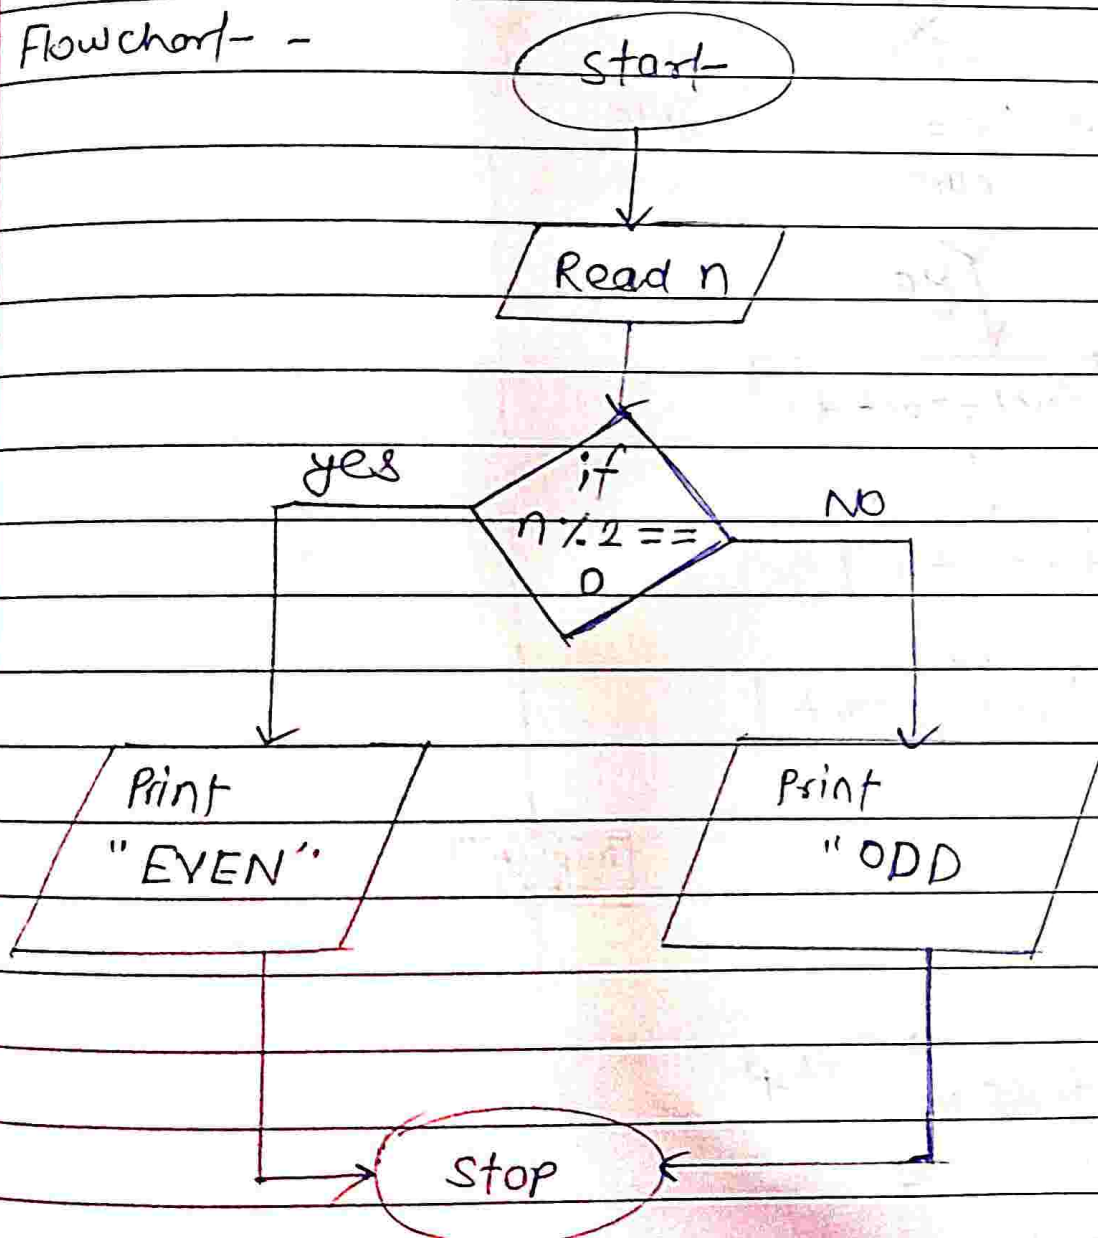 Flowchart - -
Start
Read n
if
n % 2 ==
0
yes
NO
Print
"EVEN"
Print
"ODD
Stop